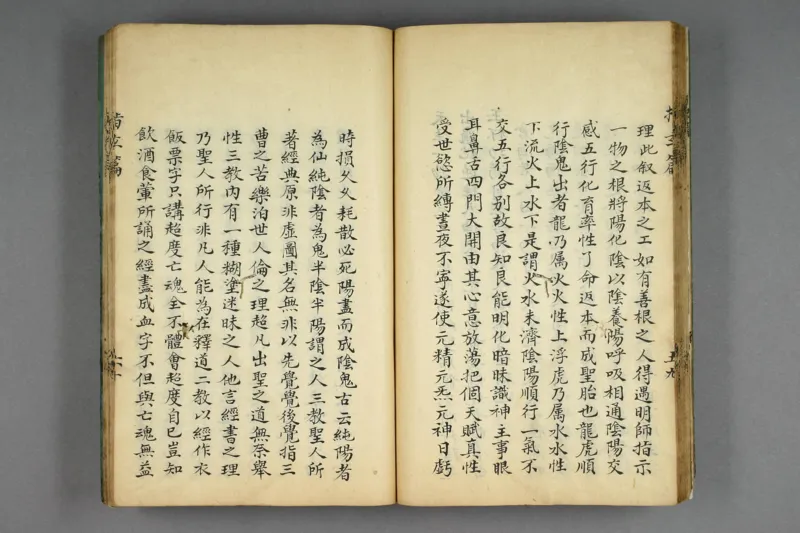 理此叙返本之工如有善根之人得遇明師指示
一物之根將陽化陰以陰養陽呼吸相通陰陽交
感五行化育率性了命返本而成聖胎也龍虎順
行陰鬼出者龍乃属火火性上浮虎乃属水水性
下流火上水下是謂火水未濟陰陽順行一氣不
交五行各別故良知良能明化暗昧識神主事眼
耳鼻舌四門大開由其心意放蕩把個天賦真性
受世慾所縛晝夜不寧遂使元精元炁元神日虧
時損久久耗散必死陽盡而成陰鬼古云純陽者
為仙純陰者為鬼半陰半陽謂之人三教聖人所
著經典原非虛圖其名無非以先覺覺後覺指三
曹之苦樂泊世人倫之理超凡出聖之道無奈舉
性三教內有一種糊塗迷昧之人他言經書之理
乃聖人所行非凡人能為在釋道二教以經作衣
飯票字只講超度亡魂全不體會超度自己豈知
飲酒食葷所誦之經盡成血字不但與亡魂無益